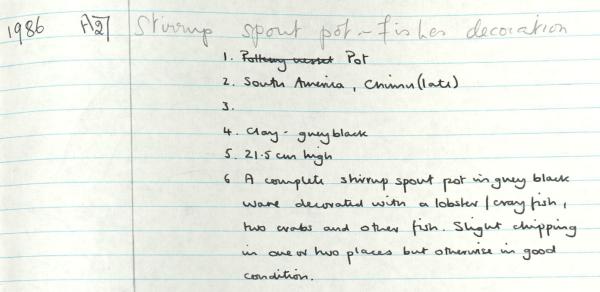 1986 A27 Stirrup spout pot - fishes decoration
1. Pottery vessel Pot
2. South America, Chimu (late)
3.
4. Clay - grey black
5. 21.5 cm high
6 A complete stirrup spout pot in grey black
ware decorated with a lobster / cray fish,
two crabs and other fish. Slight chipping
in one or two places but otherwise in good
condition.